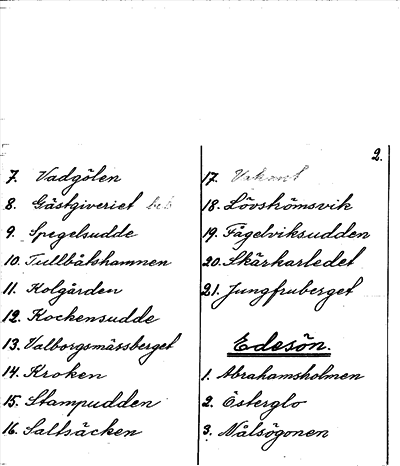 2.
7. Vadgölen
8. Gästgiveriet
9. Spegelsudde
10. Tullbåtshamnen
11. Kolgården
12. Kockensudde
13. Valborgsmässberget
14. Kroken
15. Stampudden
16. Saltsäcken
17.
18. Lövströmsvik
19. Fågelviksudden
20. Skärkarledet
21. Jungfruberget
Edesön.
1. Abrahamsholmen
2. Österglo
3. Nålsögonen